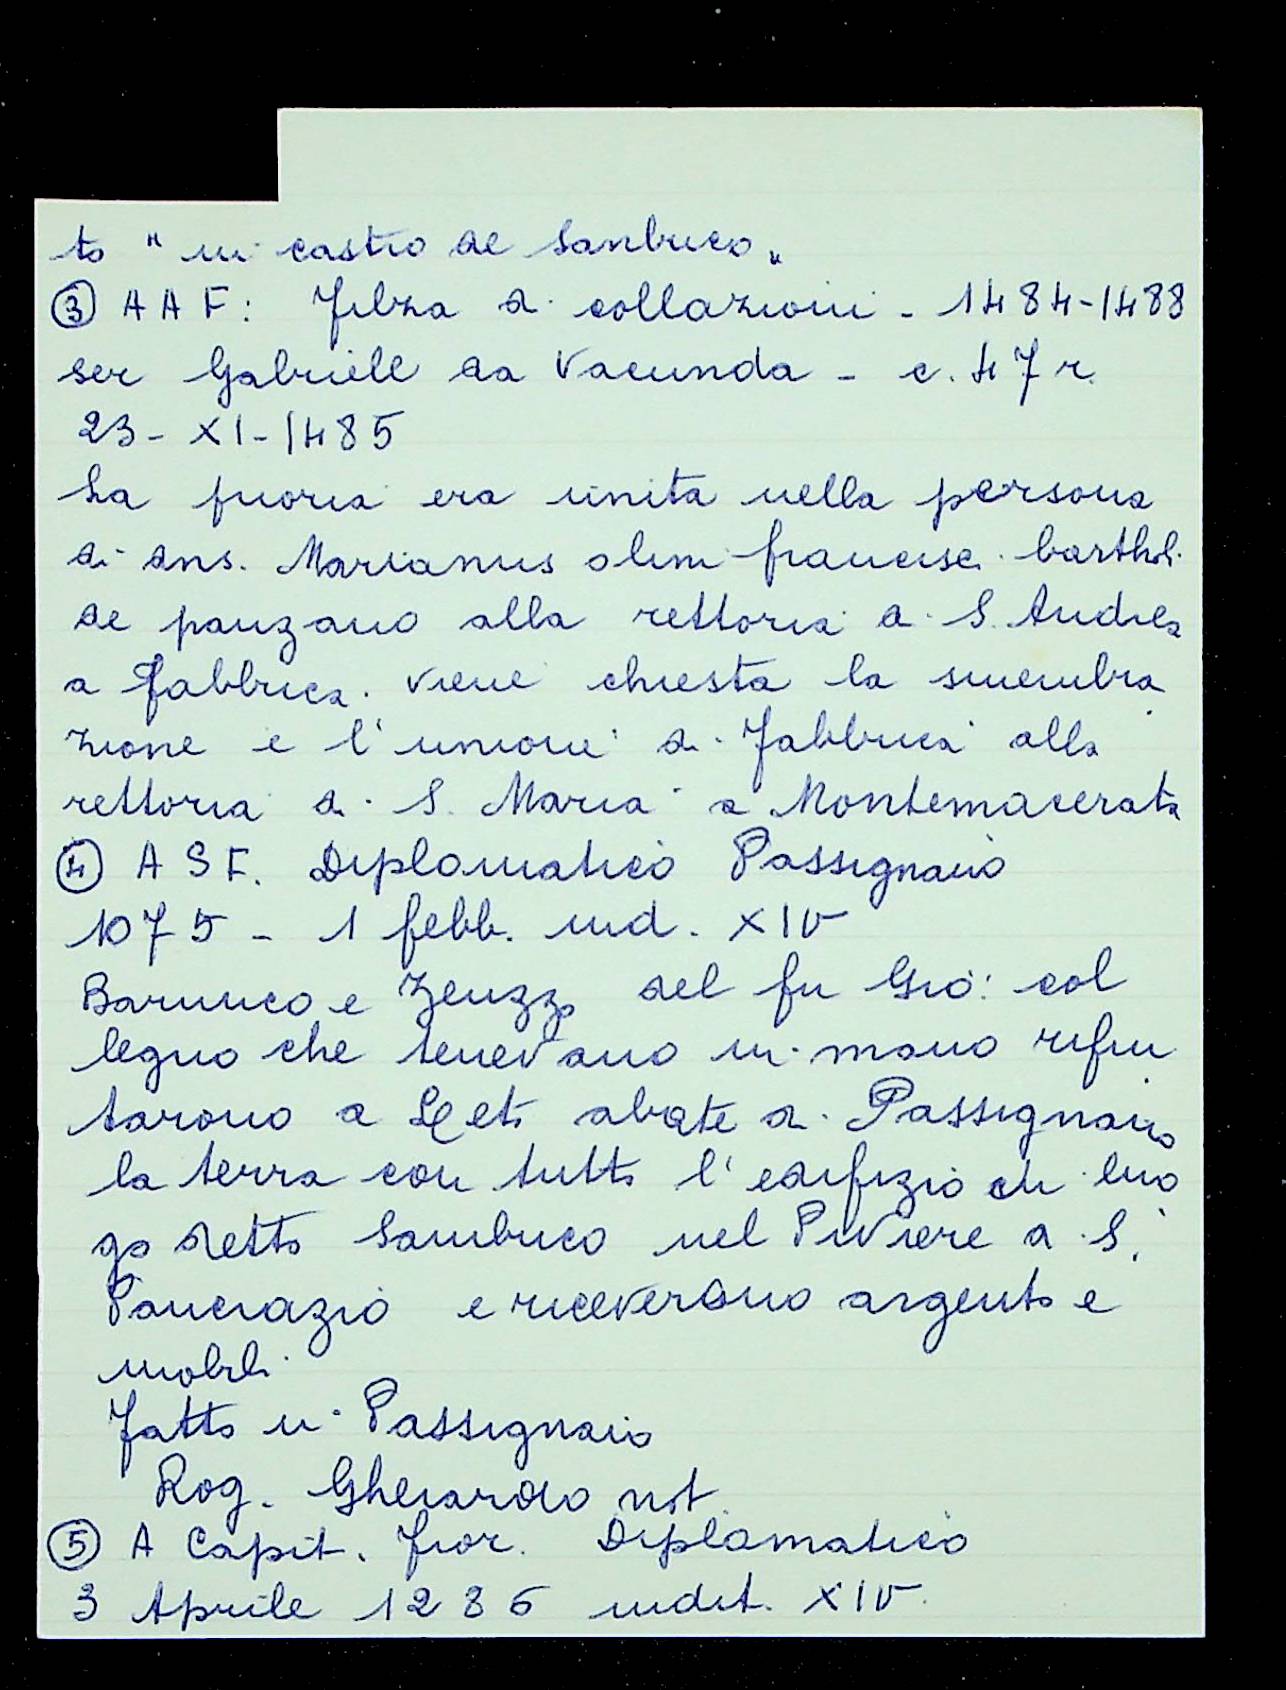 to "in castro de Sanbuco"
③ AAF: Filza di collazioni - 1484-1488
ser Gabriell da Vacunda - c. 47 r.
23 - XI - 1485
La prioria era unita nella persona
di dns. Marianus olim francisc. barthol.
de panzano alla rettoria di S. Andrea
a Fabbrica. viene chiesta la smembra
zione e l'unione di Fabbrica alla
rettoria di S. Maria a Montemacerata
④ ASF. Diplomatico Passignano
1075 - 1 febb. ind. XIV
Barunco e Zenzzo del fu Gio: col
legno che tenevano in mano rifiu
tarono a Leto abate di Passignano
la terra con tutto l'edifizio di luo
go detto Sambuco nel Piviere di S.
Pancrazio e riceverono argento e
mobili.
Fatto in Passignano
Rog. Gherardo not.
⑤ A Capit. Fior. Diplomatico
3 Aprile 1286 indit. XIV.